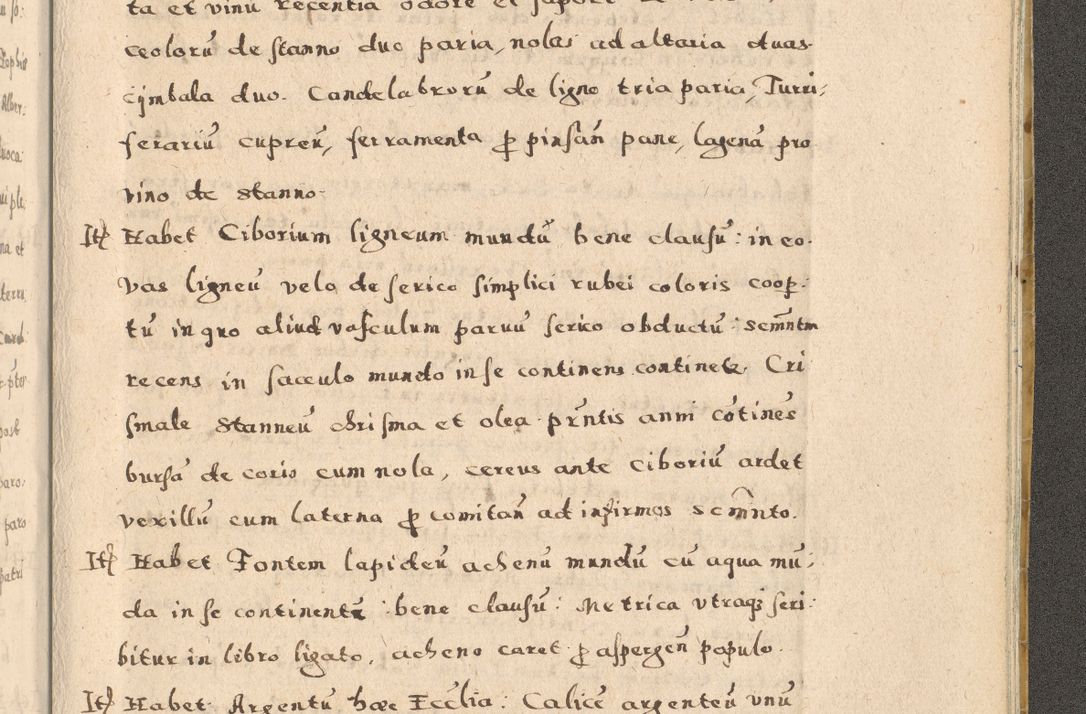 ta et vinu recentia odore et sapore
ceolorū de stanno duo paria, nolas ad altaria duas
cÿmbala duo. Candelabrorū de ligno tria paria, Turri,
ferariū cupreū, ferramenta ꝑ pinsan̄ pane, lagenā pro
vino de stanno.
Itꝫ Habet Ciborium ligneum mundū bene clausū: in eo.
vas ligneū velo de serico simplici rubei coloris cooꝑ.
tū in quo aliud vasculum paruū serico obductū: scm̄ntm
recens in sacculo mundo in se continens continetꝛ, Cri
smale stanneū chrisma et olea prn̄tis anni cōtinēs
bursā de corio cum nola, cereus ante ciboriū ardet
vexillū cum laterna ꝑ comitan̄ ad infirmos scm̄nto.
Itꝫ Habet Fontem lapideū achenū mundū cū aqua mū,
da in se continentē: bene clausū: Metrica vtraqꝫ scri:
bitur in libro ligato, acheno caret ꝑ aspergen̄ populo.
Itꝫ Habet Argentū hæc Eccl̄ia: Calicē argenteū vnū